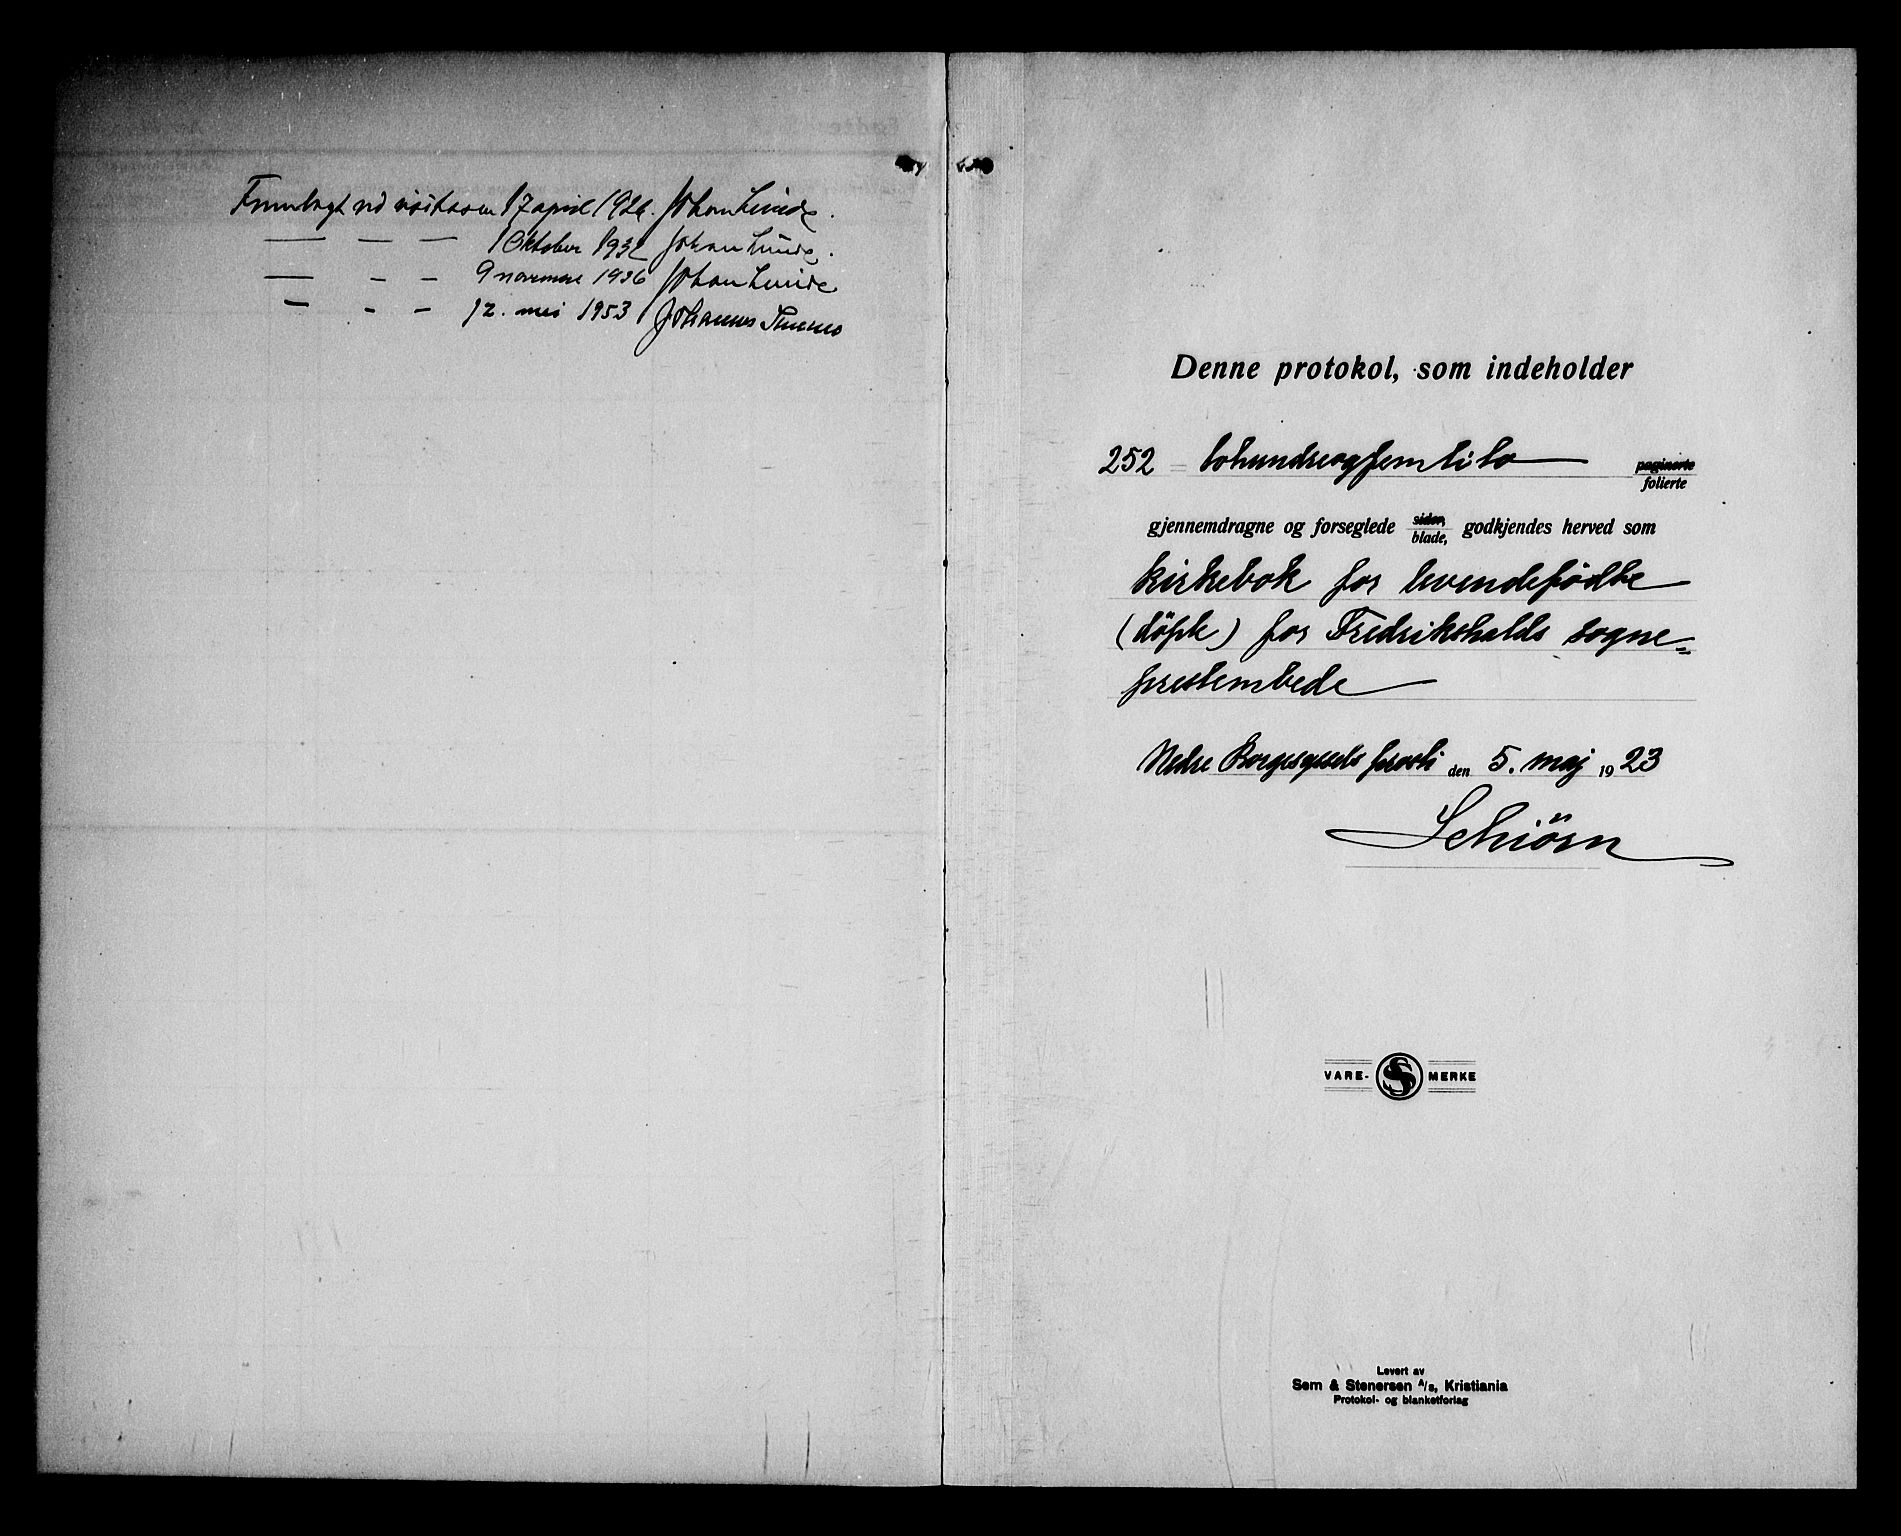 Fremlagt ved visitasen 17 april 1926. Johan Lunde.
— — — 1 Oktober 1932 Johan Lunde.
— - - 9 1936 Johan Lunde
- - - 12. mai 1953 Johannes Smemo
Denne protokol, som indeholder
252 = tohundreogfemtito — paginerte
folierte
gjennemdragne og forseglede sider, godkjendes herved som
blade,
kirkebok for levendefødte
(døpte) for Fredrikshalds sogne=
prestembede
Nedre Borgesyssels prosti den 5. maj 1923
Schiörn
VARE- SS MERKE
Levert av
Sem & Stenersen A/s, Kristiania
Protokol- og blanketforlag